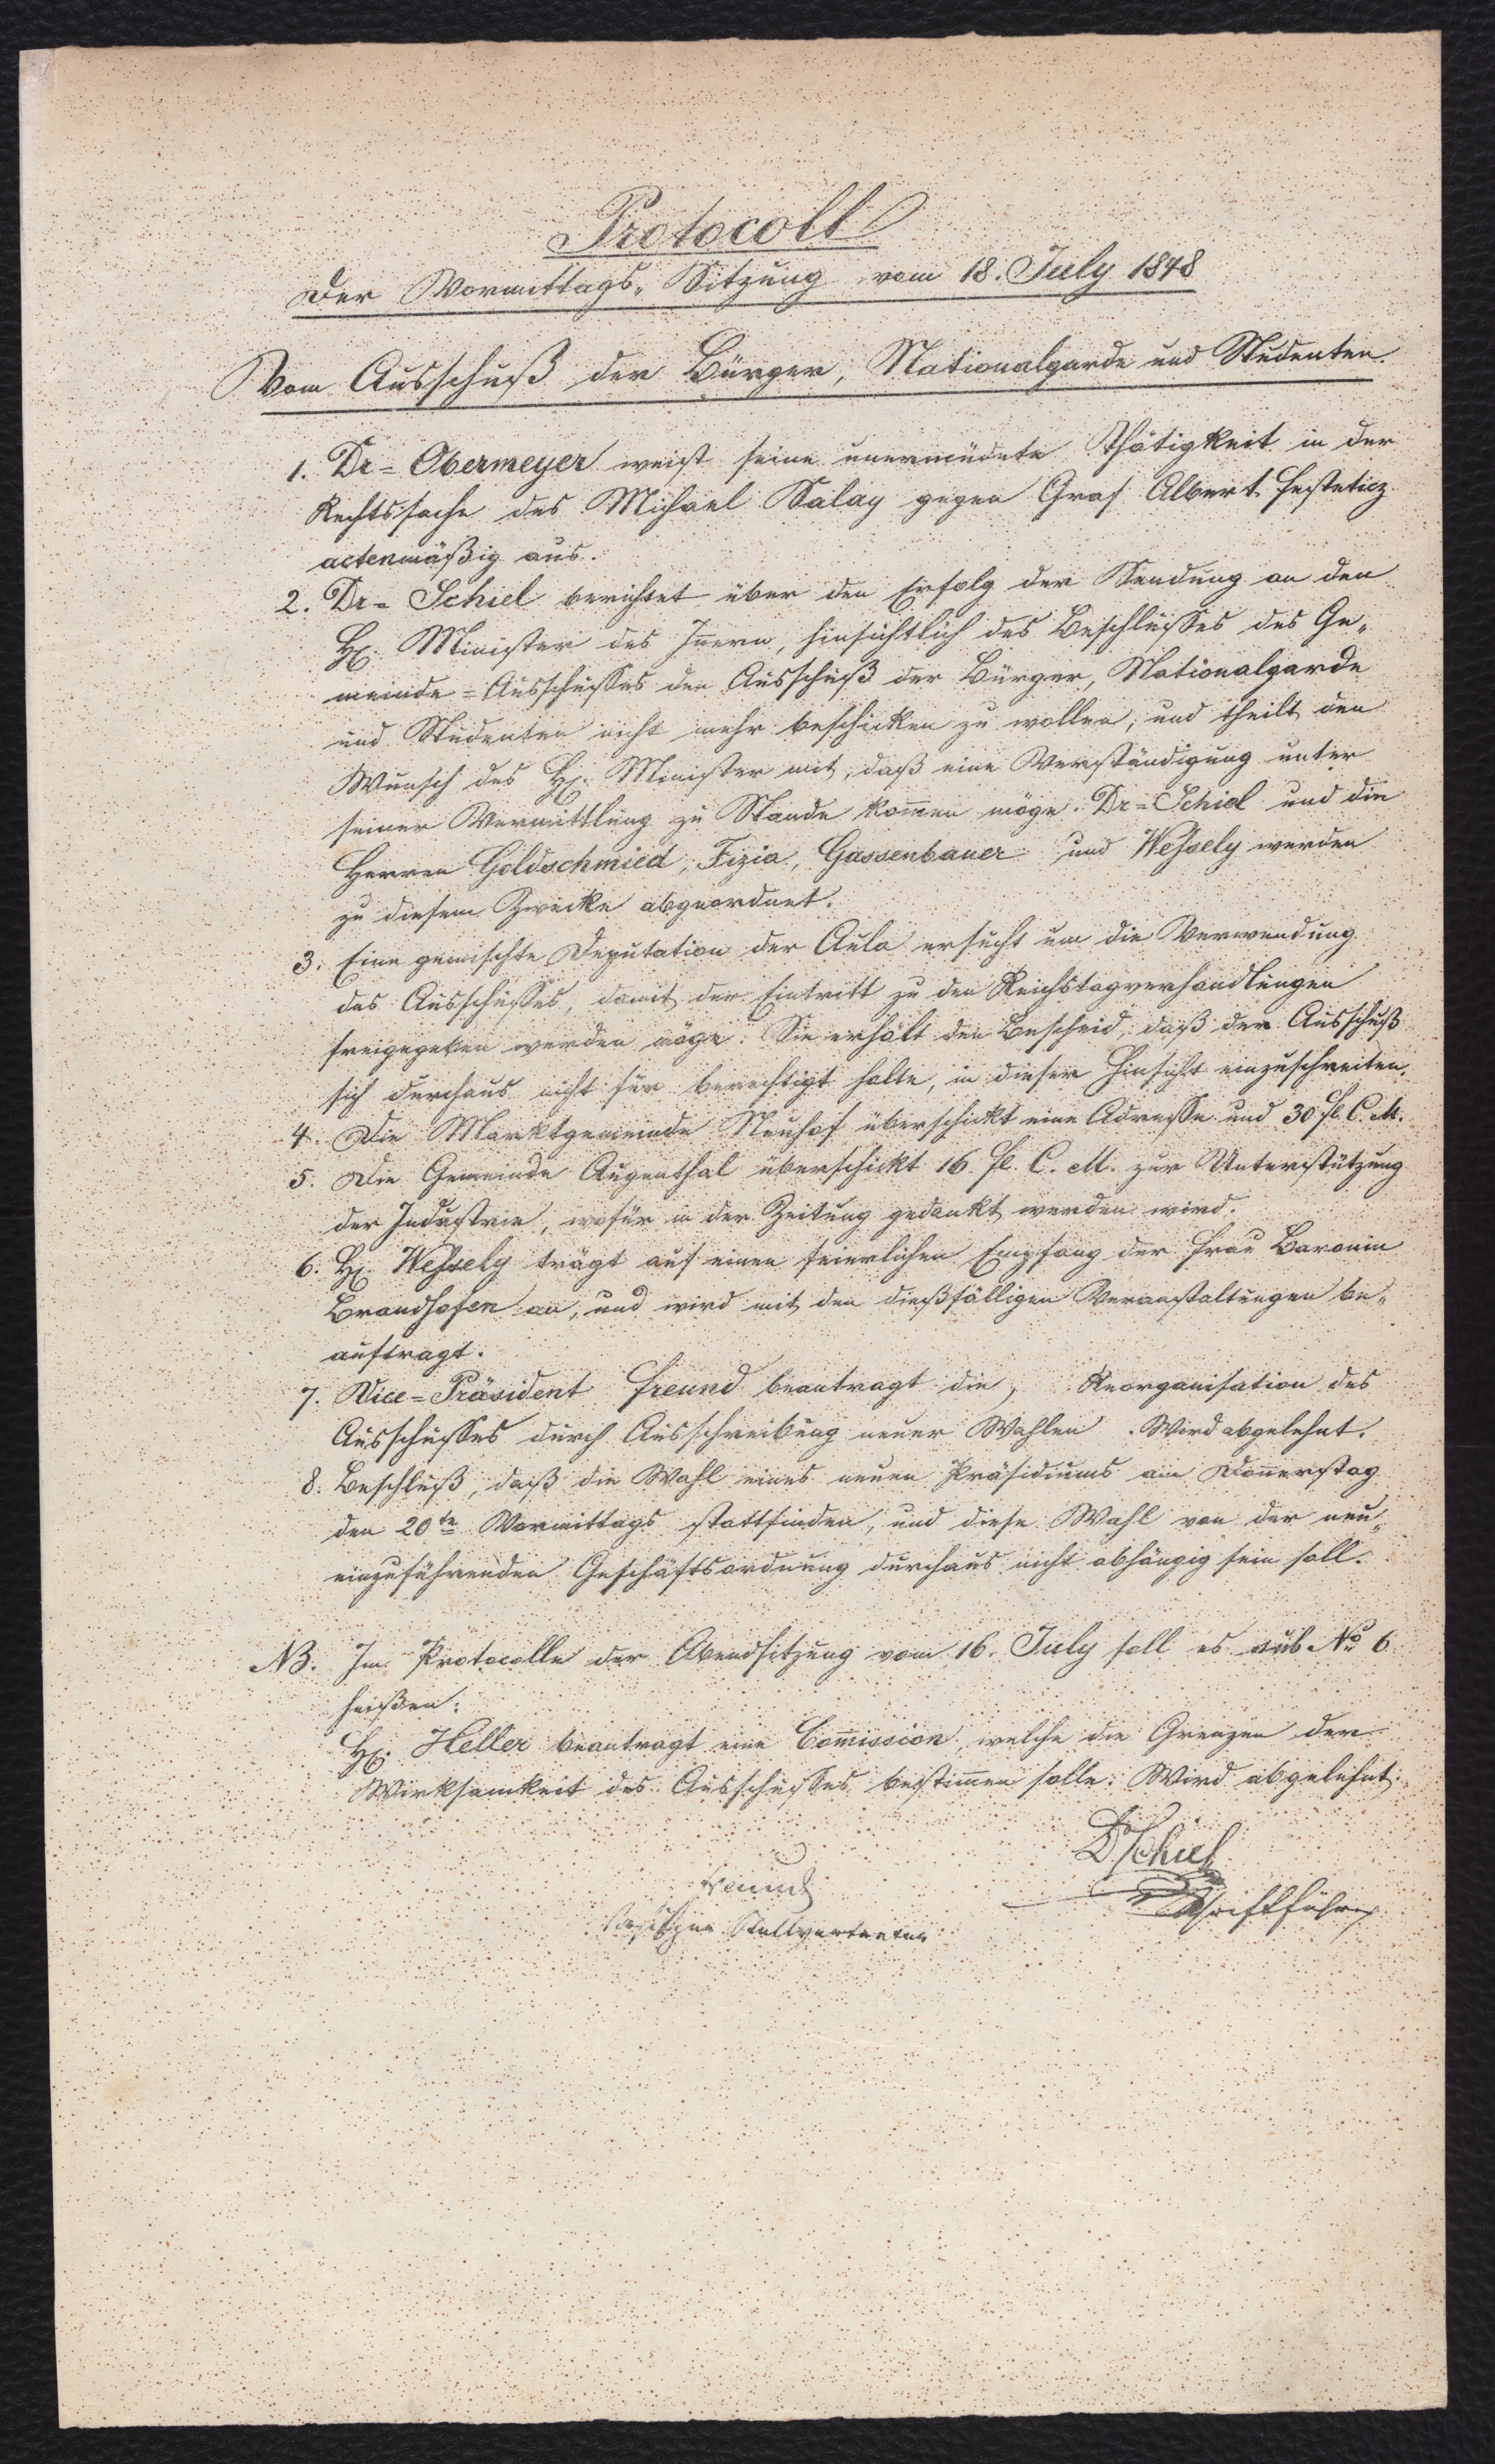 Protocoll
Der Vormittags-Sitzung vom 18. July 1848
Vom Ausschuß der Bürger, Nationalgarde und Studenten.
1. Dr= Obermeyer weist seine unermüdete Thätigkeit in der
Rechtssache des Michael Salay gegen Graf Albert Festeticz
actenmäßig aus.
2. Dr= Schiel berichtet über den Erfolg der Sendung an den
H. Minister des Iñern, hinsichtlich des Beschlußes des Ge-
meinde=Ausschußes den Ausschuß der Bürger, Nationalgarde
und Studenten nicht mehr beschicken zu wollen, und theilt den
Wunsch des H. Minister mit, daß eine Verständigung unter
seiner Vermittlung zu Stande kom̃en möge. Dr=Schiel und die
Herren Goldschmied, Fizia, Gassenbauer und Wessely werden
zu diesem Zwecke abgeordnet.
3. Eine gemischte Deputation der Aula ersucht um die Verwendung
des Ausschußes, damit der Eintritt zu den Reichstagverhandlungen
freigegeben werden möge. Sie erhält den Bescheid, daß der Ausschuß
sich durchaus nicht für berechtigt halte, in dieser Hinsicht einzuschreiten.
4. Die Marktgemeinde Neuhof überschickt eine Adresse und 30 fl. C. M.
5. Die Gemeinde Augenthal überschickt 16 fl. C. M. zur Unterstützung
der Industrie, wofür in der Zeitung gedankt werden wird.
6. H. Wessely trägt auf einen feierlichen Empfang der Frau Baronin
Brandhofen an, und wird mit den dießfälligen Veranstaltungen be-
auftragt.
7. Vice=Präsident Freund beantragt die, Reorganisation des
Ausschußes durch Ausschreibung neuer Wahlen. Wird abgelehnt.
8. Beschluß, daß die Wahl eines neuen Präsidiums am Doñerstag
den 20te Vormittags stattfinden, und diese Wahl von der neu-
einzuführenden Geschäftsordnung durchaus nicht abhängig sein soll.
NB. Im Protocolle der Abendsitzung vom 16. July soll es sub No 6
heißen:
H. Heller beantragt eine Com̃ission, welche die Grenzen der
Wirksamkeit des Ausschußes bestim̃en solle. Wird abgelehnt.
Dr Schiel
Freund
Schriftführer
Stellvertreter